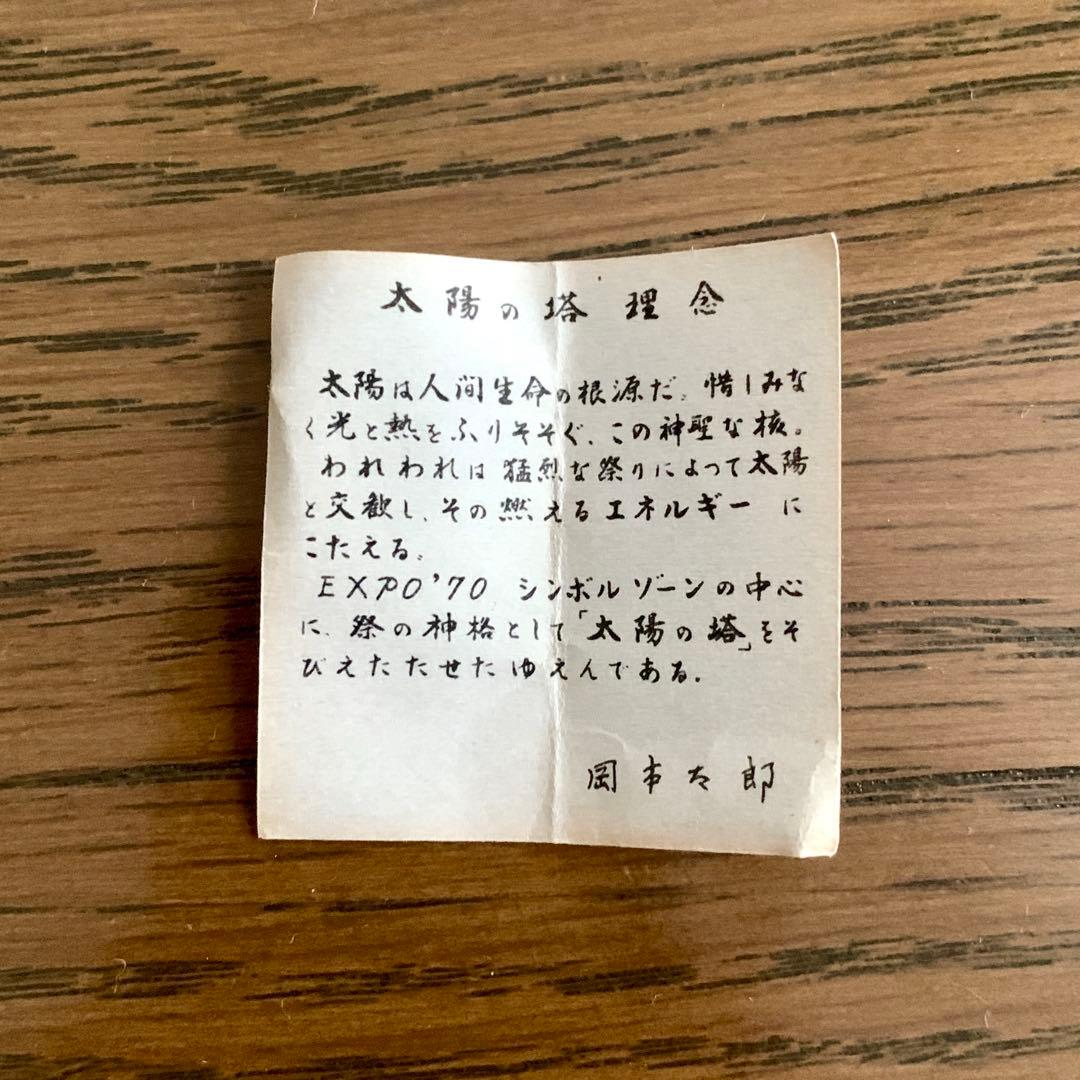 太陽の塔 理念
太陽は人間生命の根源だ。惜しみな
く光と熱をふりそそぐ、この神聖な核。
われわれは猛烈な祭りによって太陽
と交歓し、その燃えるエネルギー に
こたえる。
EXPO'70 シンボルゾーンの中心
に、祭の神格として「太陽の塔」をそ
びえたたせたゆえんである。
岡本太郎